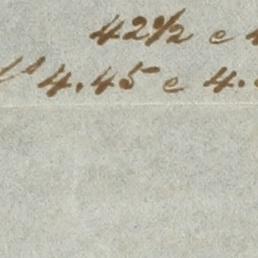 42½ e 4
4.45 e 4.